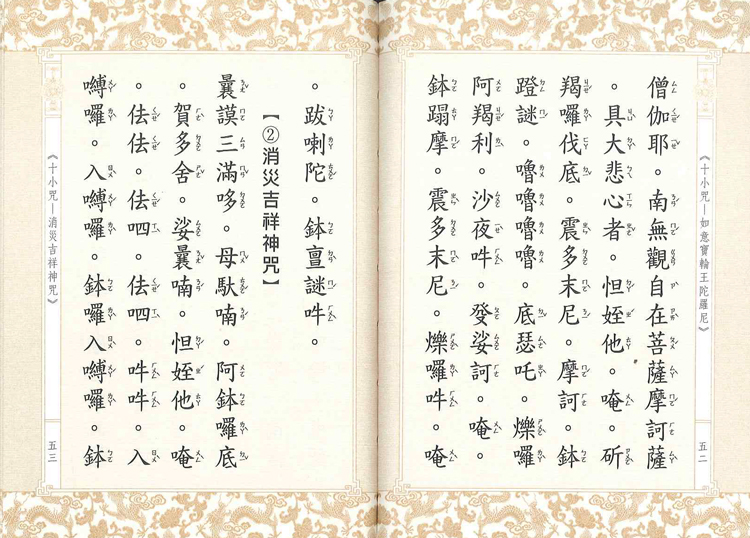 《十小咒—如意寶輪王陀羅尼》
五二
僧伽耶。南無觀自在菩薩摩訶薩
。具大悲心者。怛姪他。唵。斫
羯囉伐底。震多末尼。摩訶。鉢
蹬謎。嚕嚕嚕嚕。底瑟吒。爍囉
阿羯利。沙夜吽。癹娑訶。唵。
鉢蹋摩。震多末尼。爍囉吽。唵
。跋喇陀。鉢亶謎吽。
【②消災吉祥神咒】
曩謨三滿哆。母馱喃。阿鉢囉底
。賀多舍。娑曩喃。怛姪他。唵
。佉佉。佉呬。佉呬。吽吽。入
嚩囉。入嚩囉。鉢囉入嚩囉。鉢
《十小咒—消災吉祥神咒》
五三